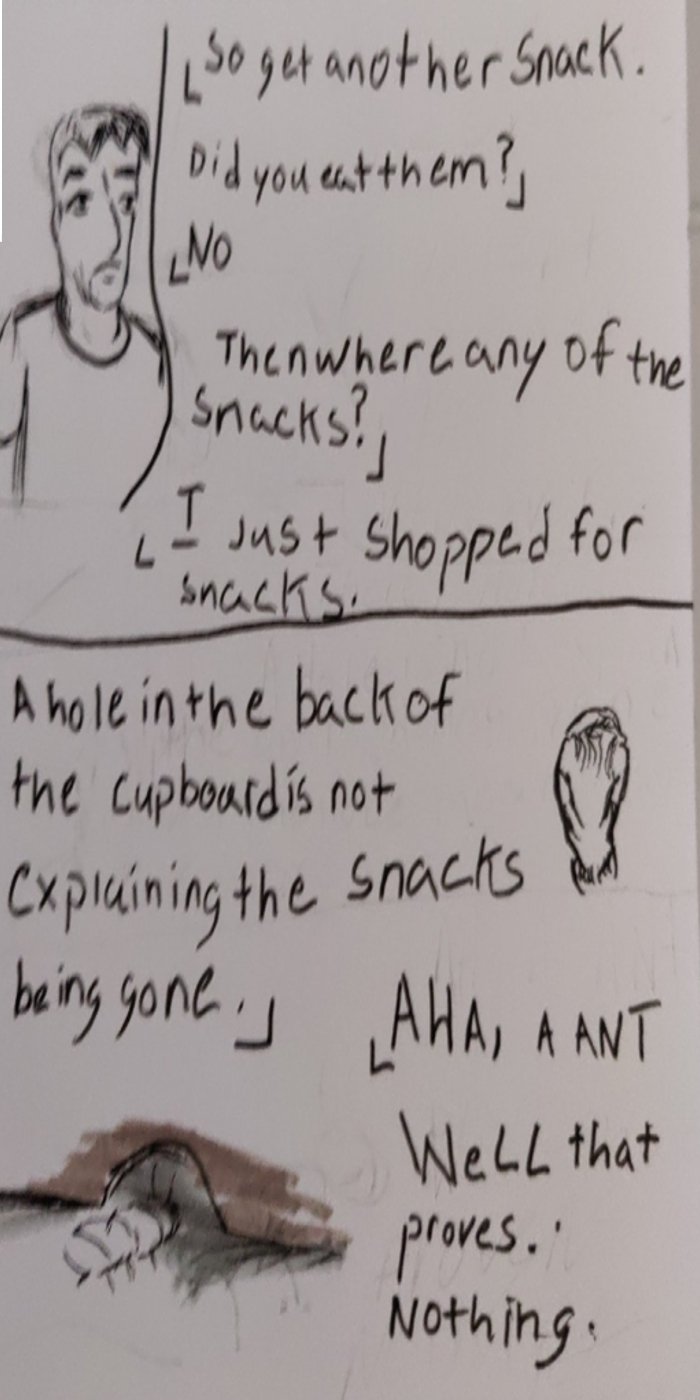 ⌊So get another Snack.
Did you eat them?⌋
⌊No
Then where any of the
snacks?⌋
⌊I Just shopped for
snacks.
A hole in the back of
the cupboard is not
explaining the snacks
being gone.⌋
⌊AHA, A ANT
WeLL that
proves..
Nothing.